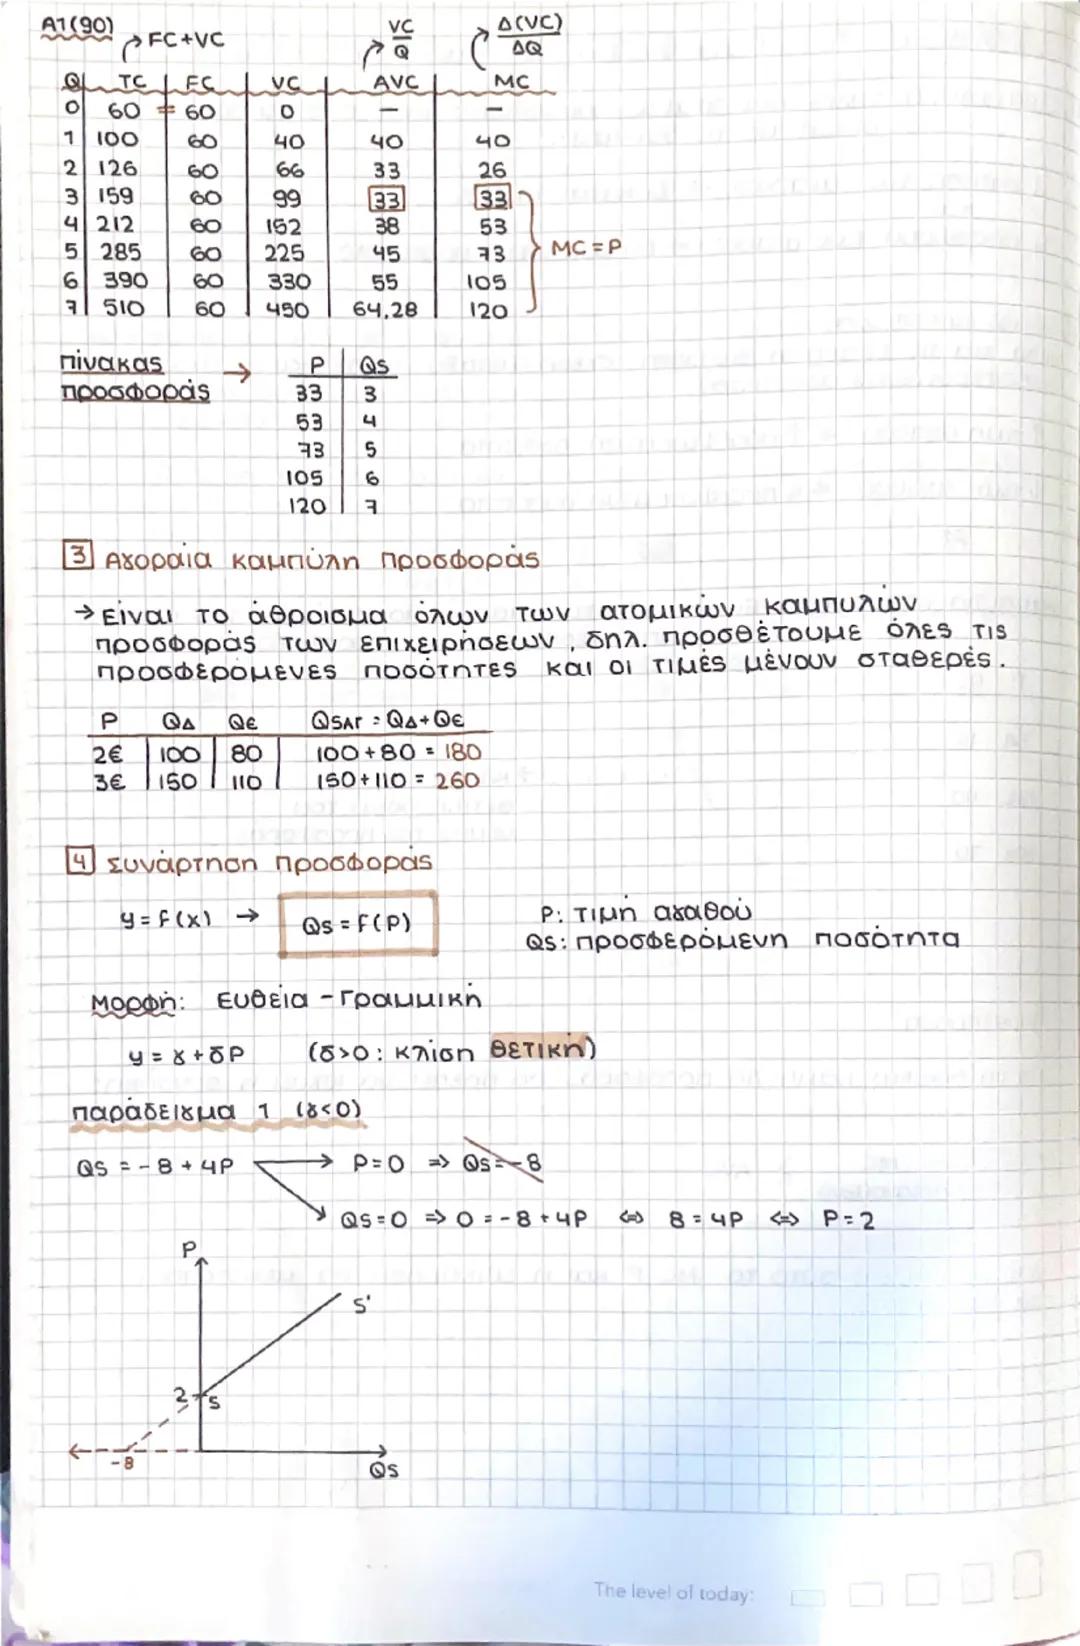 Α1(90)
FC+VC
VC/Q
Δ(VC)/ΔQ
Q TC FC VC AVC MC
0 60 = 60 0 — —
1 100 60 40 40 40
2 126 60 66 33 26
3 159 60 99 33 33
4 212 60 152 38 53
5 285 60 225 45 73
6 390 60 330 55 105
7 510 60 450 64,28 120
MC = P
πίνακας → P Qs
προσφοράς 33 3
53 4
73 5
105 6
120 7
3 Αγοραία καμπύλη προσφοράς
→ Είναι το άθροισμα όλων των ατομικών καμπυλών
προσφοράς των επιχειρήσεων, δηλ. προσθέτουμε όλες τις
προσφερόμενες ποσότητες και οι τιμές μένουν σταθερές.
P QΔ Qε QSΑΓ = QΔ+Qε
2€ 100 80 100+80 = 180
3€ 150 110 150+110 = 260
4 Συνάρτηση προσφοράς
y = f(x) → Qs = F(P)
P: τιμή αγαθού
Qs: προσφερόμενη ποσότητα
Μορφή: Ευθεία - Γραμμική
y = γ + δP (δ>0: κλίση θετική)
παράδειγμα 1 (γ<0)
Qs = -8 + 4P → P=0 ⇒ Qs=-8
Qs=0 ⇒ 0 = -8 + 4P ⇔ 8 = 4P ⇔ P=2
P
S'
2 S
-8
Qs
The level of today: